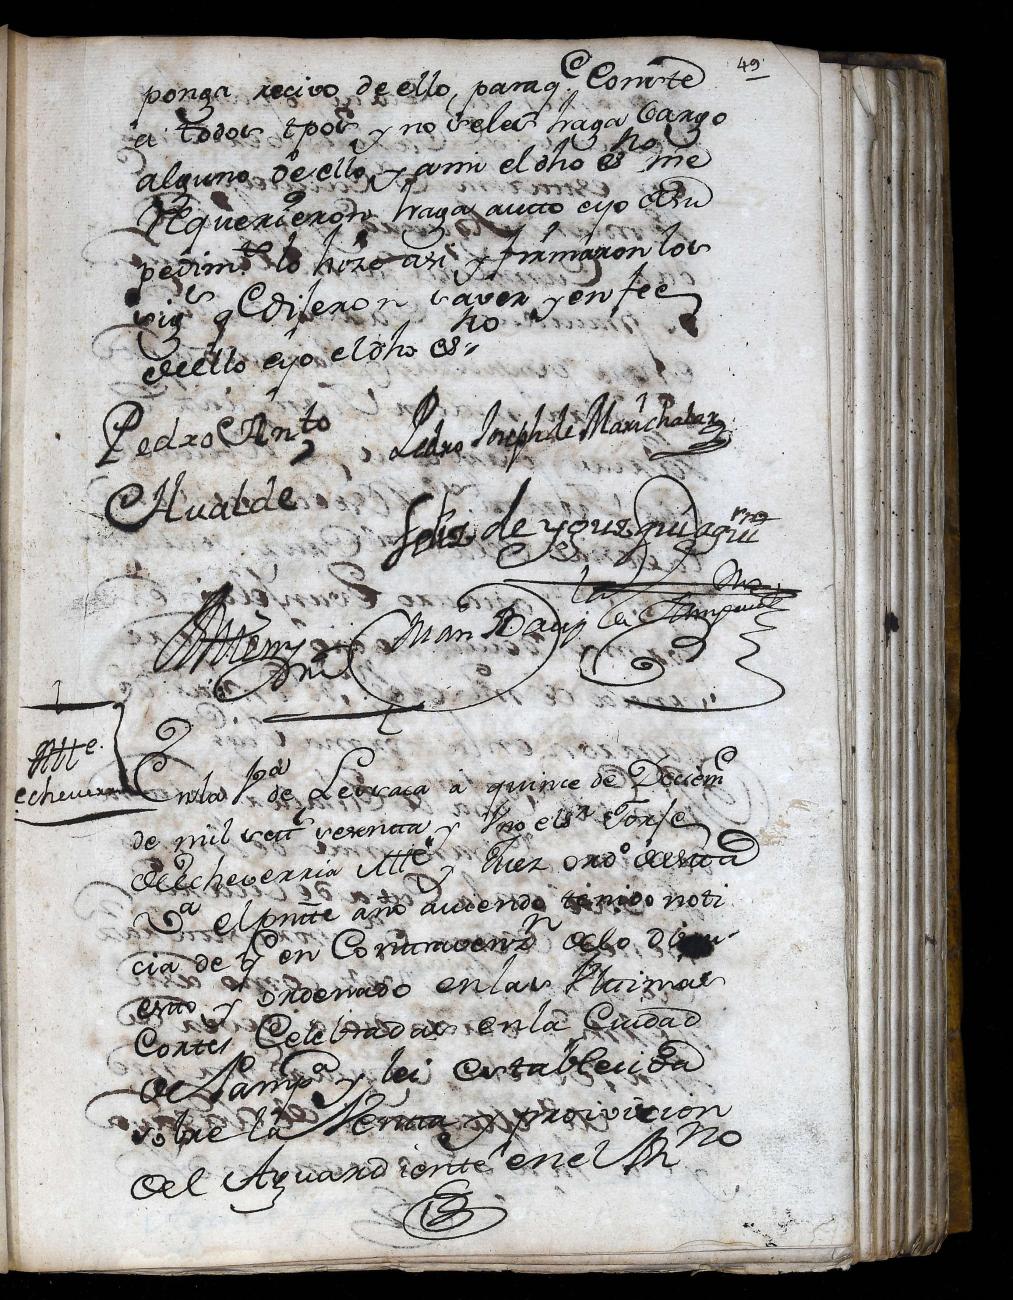 49
ponga recivo de ello, paraq.e Conste
a todos tpos y no seles haga Cargo
alguno de ello, y ami el dho es.no me
Requirieron haga autto eyo asu
pedim.to lo hize asi y firmaron los
sig.es q.e dijeron saver y en fee
de ello eyo el dho es.no
Pedro Ant.o Pedro Joseph de Marichalar
Hualde
Feliz de
Juan Baup.ta
Atte.
echeverria
En la V.a de Lesaca a quince de Deciem.e
de mil sett.s sesenta y uno el s.r Jorje
de Echeverria Atte y Juez ord.o de esta
V.a el pnte año aviendo tenido noti
cia de q.e en Contravenz.n de lo dispu-
esto y ordenado en las Ultimas
Cortes Celebradas en la Ciudad
de Pamp.a y lei establecida
sobre la Venta y proivicion
del Aguardiente en el R.no